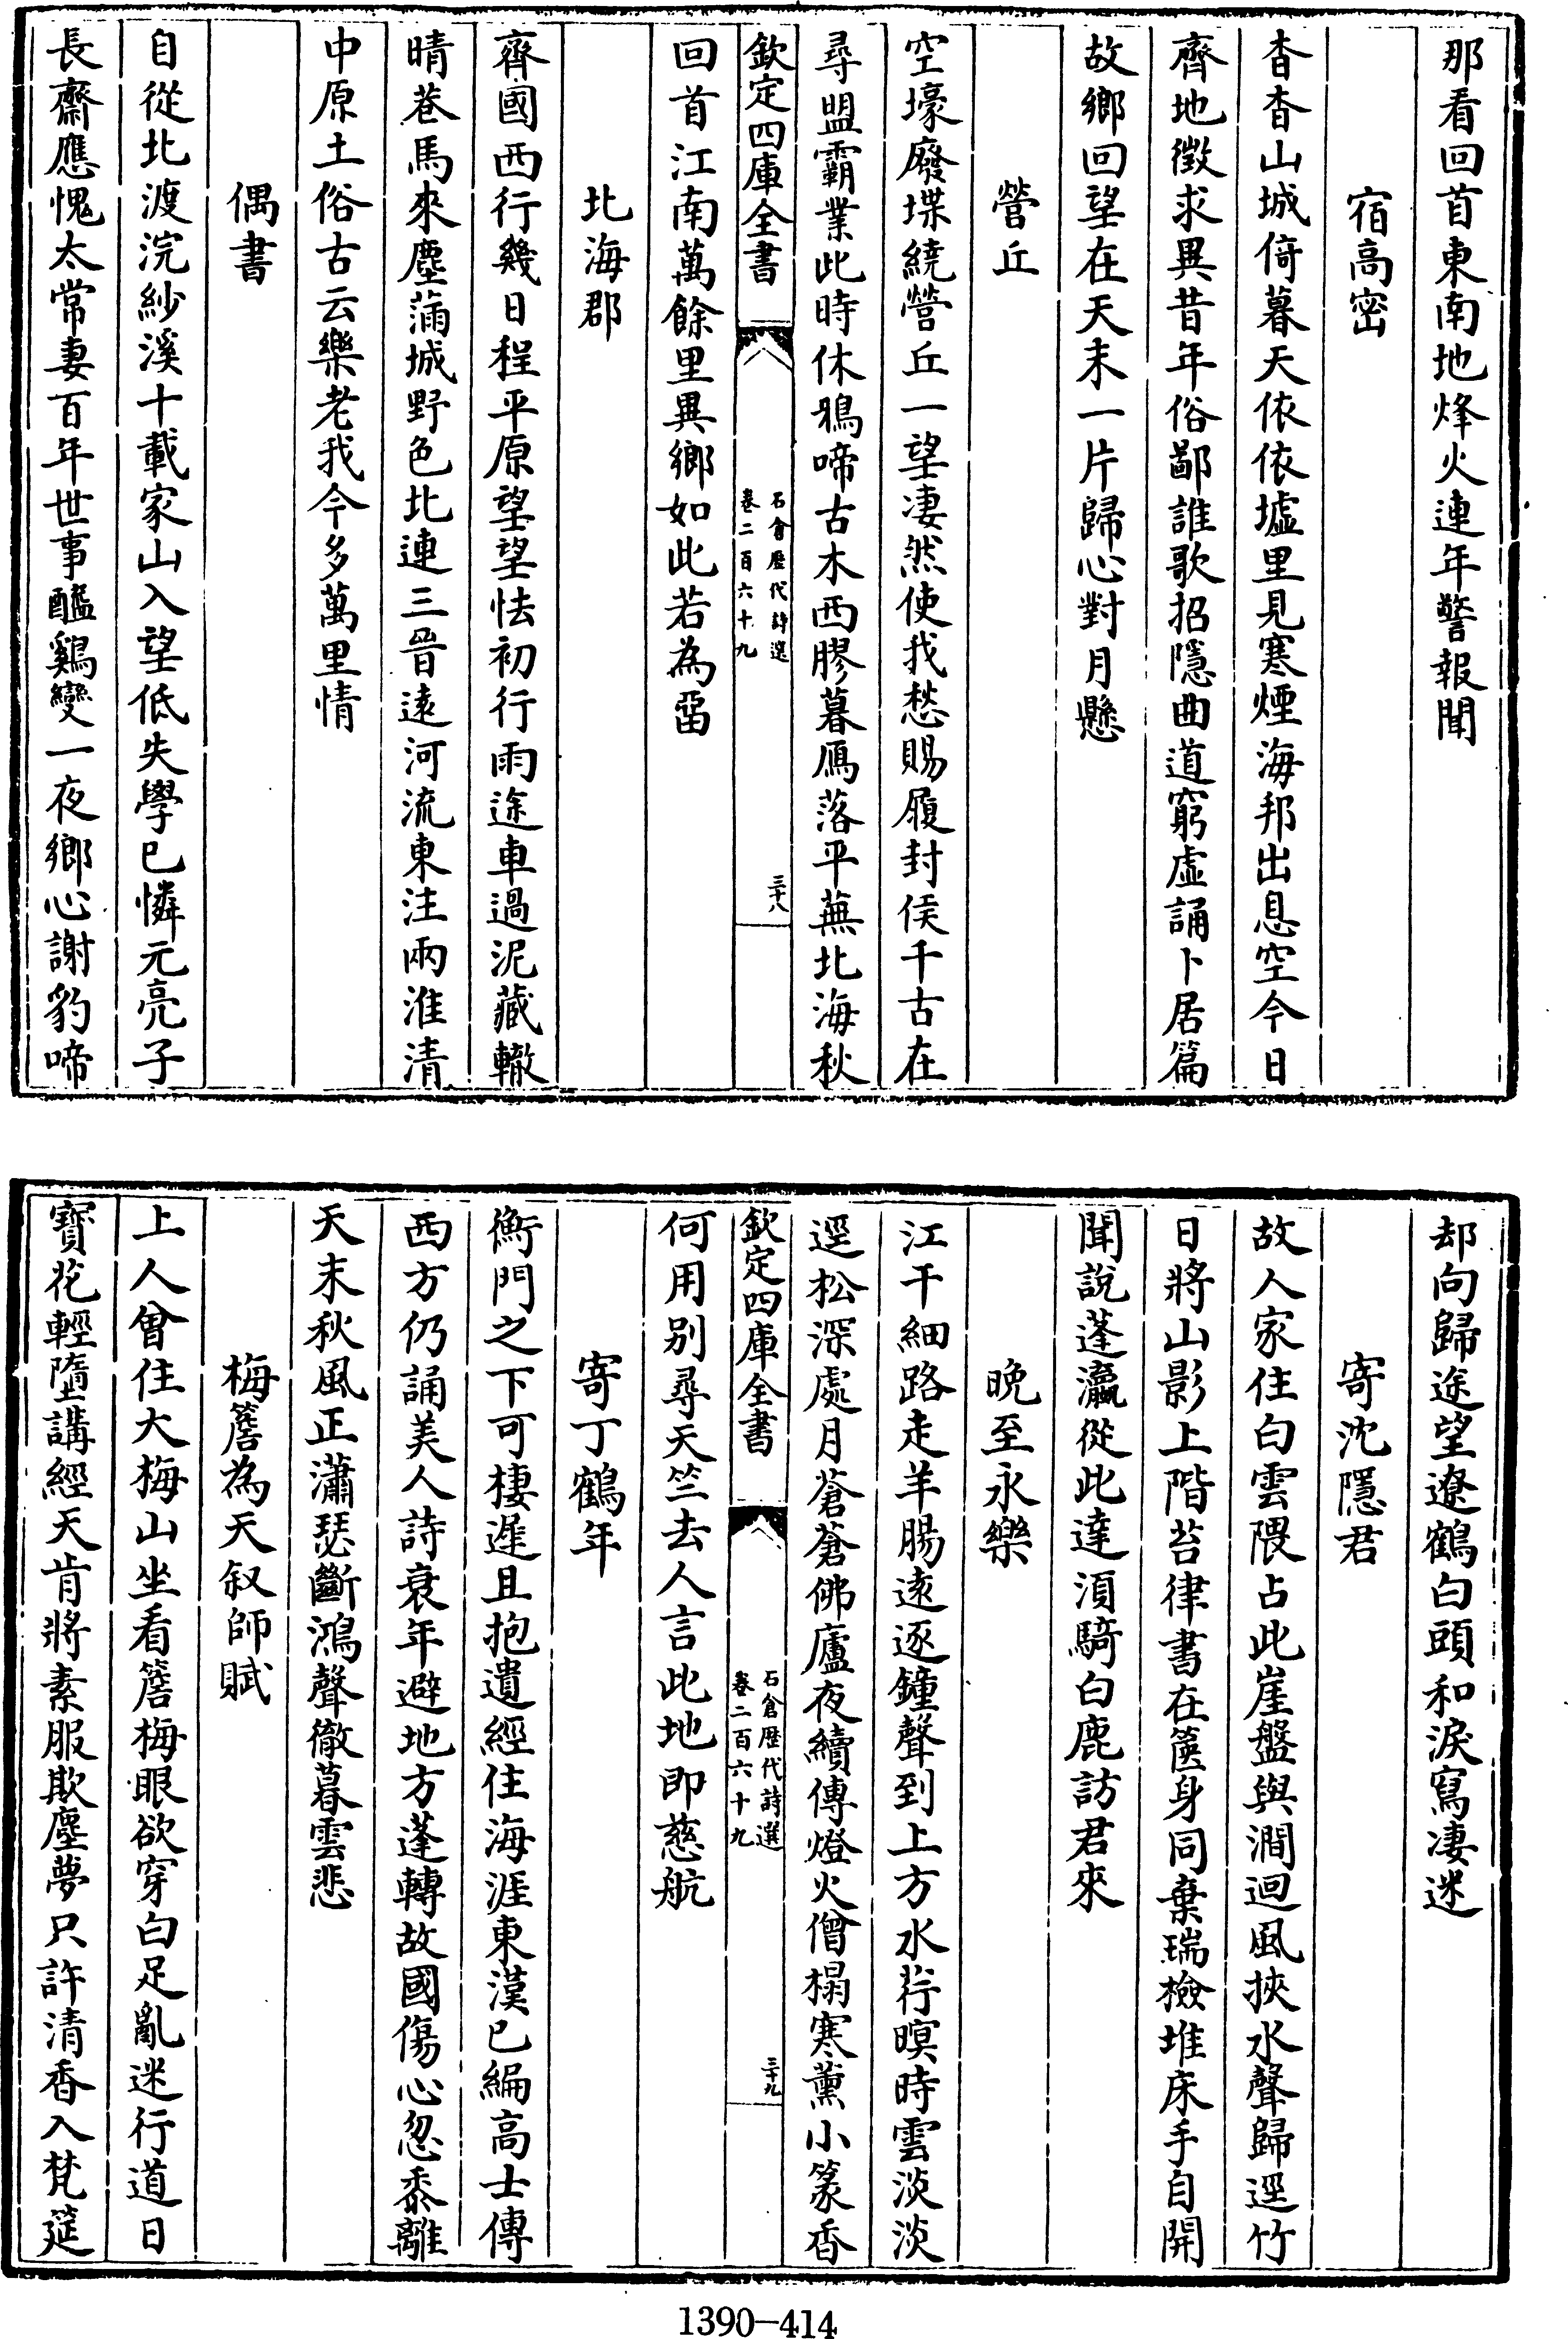 那看回首東南地烽火連年警報聞
宿高密
杳杳山城倚暮天依依墟里見寒煙海邦出息空今日
齊地徵求異昔年俗鄙誰歌招隱曲道窮虚誦卜居篇
故鄉回望在天末一片歸心對月懸
營丘
空壕廢堞繞營丘一望凄然使我愁賜履封侯千古在
尋盟霸業此時休鴉啼古木西膠暮鴈落平蕪北海秋
欽定四庫全書
石倉歴代詩選
卷二百六十九
三十八
回首江南萬餘里異鄉如此若為畱
北海郡
齊國西行幾日程平原望望怯初行雨途車過泥藏轍
晴巷馬來塵滿城野色北連三晉逺河流東注兩淮清
中原土俗古云樂老我今多萬里情
偶書
自從北渡浣紗溪十載家山入望低失學已憐元亮子
長齋應愧太常妻百年世事醯鷄變一夜鄉心謝豹啼
却向歸途望遼鶴白頭和淚寫凄迷
寄沈隱君
故人家住白雲隈占此崖盤與澗迴風挾水聲歸逕竹
日將山影上階苔律書在篋身同棄瑞檢堆床手自開
聞說蓬瀛從此達湏騎白鹿訪君來
晚至永樂
江干細路走羊腸逺逐鐘聲到上方水荇暝時雲淡淡
逕松深處月蒼蒼佛廬夜續傳燈火僧榻寒薰小篆香
欽定四庫全書
石倉歴代詩選
卷二百六十九
三十九
何用别尋天竺去人言此地即慈航
寄丁鶴年
衡門之下可棲遲且抱遺經住海涯東漢已編高士傳
西方仍誦美人詩衰年避地方蓬轉故國傷心忽黍離
天末秋風正瀟瑟斷鴻聲徹暮雲悲
梅簷為天叙師賦
上人曾住大梅山坐看簷梅眼欲穿白足亂迷行道日
寶花輕墮講經天肯將素服欺塵夢只許清香入梵筵
1390-414